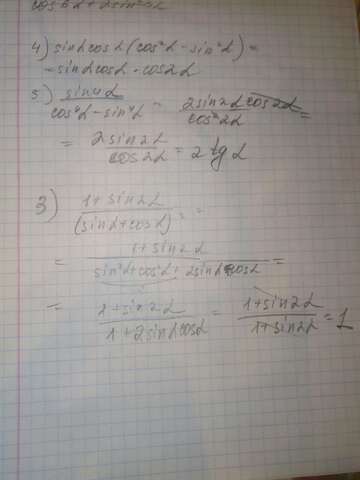 cos6α + 2sin²2α
4) sinα cosα (cos²α - sin²α) =
= sinα cosα · cos2α
5) sin4α / cos⁴α - sin⁴α = 2sin2α cos2α / cos²2α =
= 2sin2α / cos2α = 2 tg α
3) 1 + sin2α / (sinα + cosα)² =
= 1 + sin2α / sin²α + cos²α + 2sinα cosα =
= 1 + sin2α / 1 + 2sinα cosα = 1 + sin2α / 1 + sin2α = 1